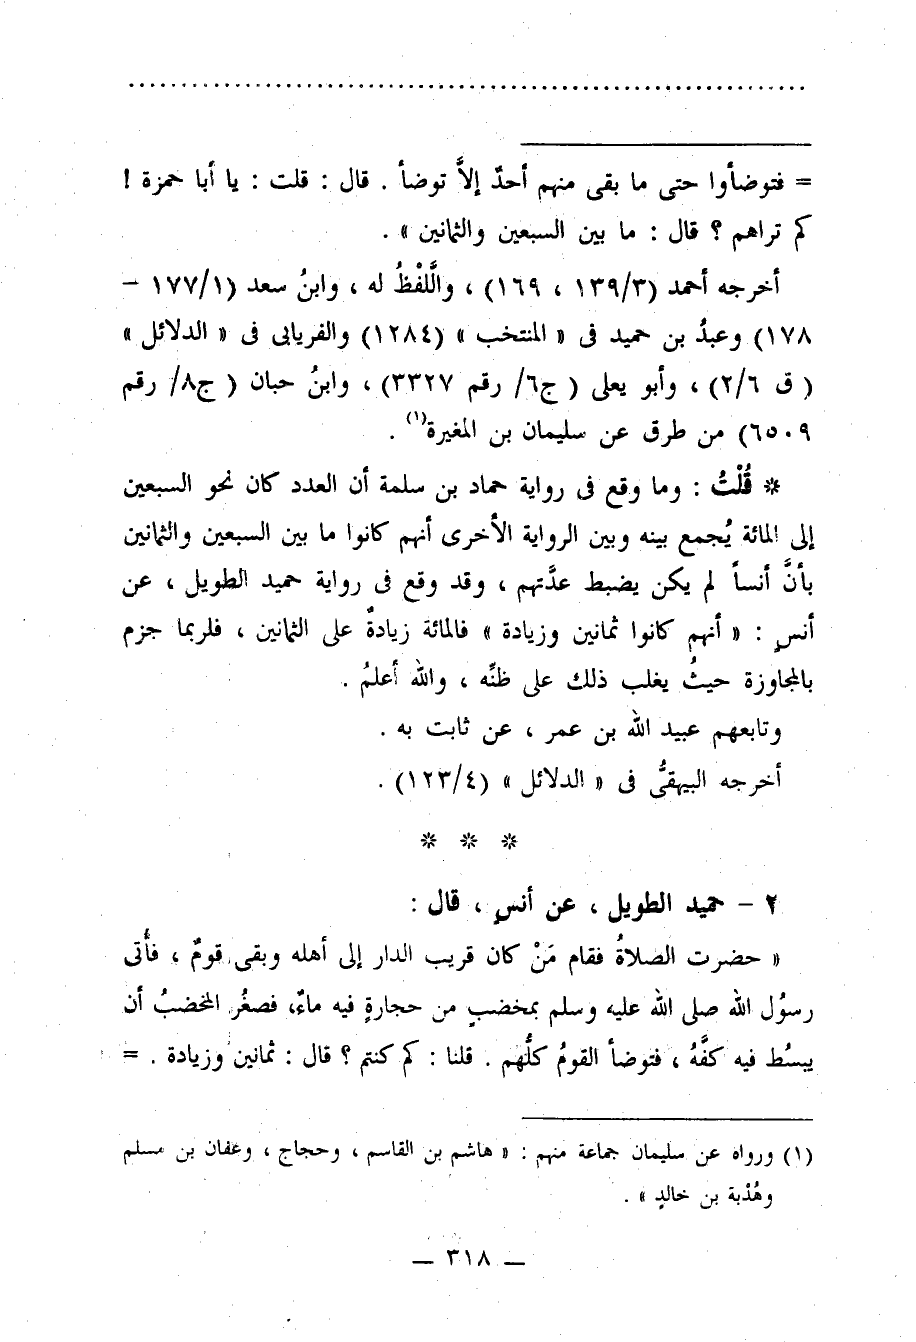 ................................................................
= فتوضأوا حتى ما بقى منهم أحدٌ إلاَّ توضأ . قال : قلت : يا أبا حمزة !
كم تراهم ؟ قال : ما بين السبعين والثمانين » .
أخرجه أحمد (١٣٩/٣ ، ١٦٩) ، واللَّفْظُ له ، وابنُ سعد (١٧٧/١ –
١٧٨) وعبدُ بن حميد فى « المنتخب » (١٢٨٤) والفريابى فى « الدلائل »
( ق ٢/٦) ، وأبو يعلى ( ج٦/ رقم ٣٣٢٧) ، وابنُ حبان ( ج٨/ رقم
٦٥٠٩) من طرق عن سليمان بن المغيرة(١) .
* قُلْتُ : وما وقع فى رواية حماد بن سلمة أن العدد كان نحو السبعين
إلى المائة يُجمع بينه وبين الرواية الأخرى أنهم كانوا ما بين السبعين والثمانين
بأنَّ أنساً لم يكن يضبط عدَّتهم ، وقد وقع فى رواية حميد الطويل ، عن
أنسٍ : « أنهم كانوا ثمانين وزيادة » فالمائة زيادةٌ على الثمانين ، فلربما جزم
بالمجاوزة حيثُ يغلب ذلك على ظنِّه ، والله أعلمُ .
وتابعهم عبيد الله بن عمر ، عن ثابت به .
أخرجه البيهقىُّ فى « الدلائل » (١٢٣/٤) .
* * *
٢ – حميد الطويل ، عن أنسٍ ، قال :
« حضرت الصلاةُ فقام مَنْ كان قريب الدار إلى أهله وبقى قومٌ ، فأُتى
رسوُل الله صلى الله عليه وسلم بمخضبٍ من حجارةٍ فيه ماءٌ، فصغُر المخضبُ أن
يبسُط فيه كفَّهُ ، فتوضأ القومُ كلُّهم . قلنا : كم كنتم ؟ قال : ثمانين وزيادة . =
(١) ورواه عن سليمان جماعة منهم : « هاشم بن القاسم ، وحجاج ، وعفان بن مسلم
وهُدْبة بن خالدٍ » .
— ٣١٨ —